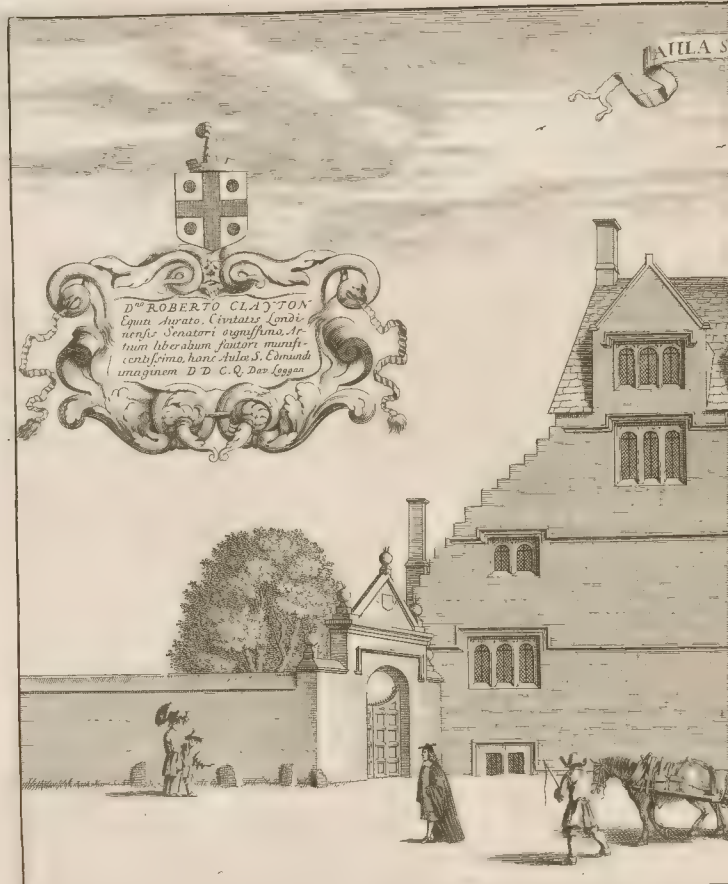 AULA S
Dno ROBERTO CLAYTON
Equiti Aurato, Civitatis Londi-
nensis Senatori dignissimo, Ar-
tium liberalium fautori munifi-
centissimo, hanc Aulæ S. Edmundi
imaginem D D C.Q. Dav. Loggan